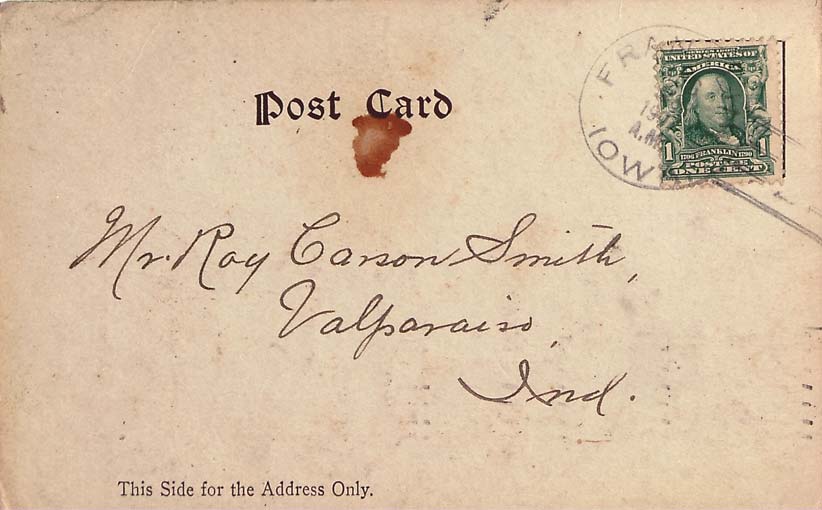 Post Card
IOWA
A.M.
SERIES 1902
UNITED STATES OF
AMERICA
1 1706 FRANKLIN 1790 1
POSTAGE
ONE CENT
Mr. Roy Carson Smith,
Valparaiso,
Ind.
This Side for the Address Only.